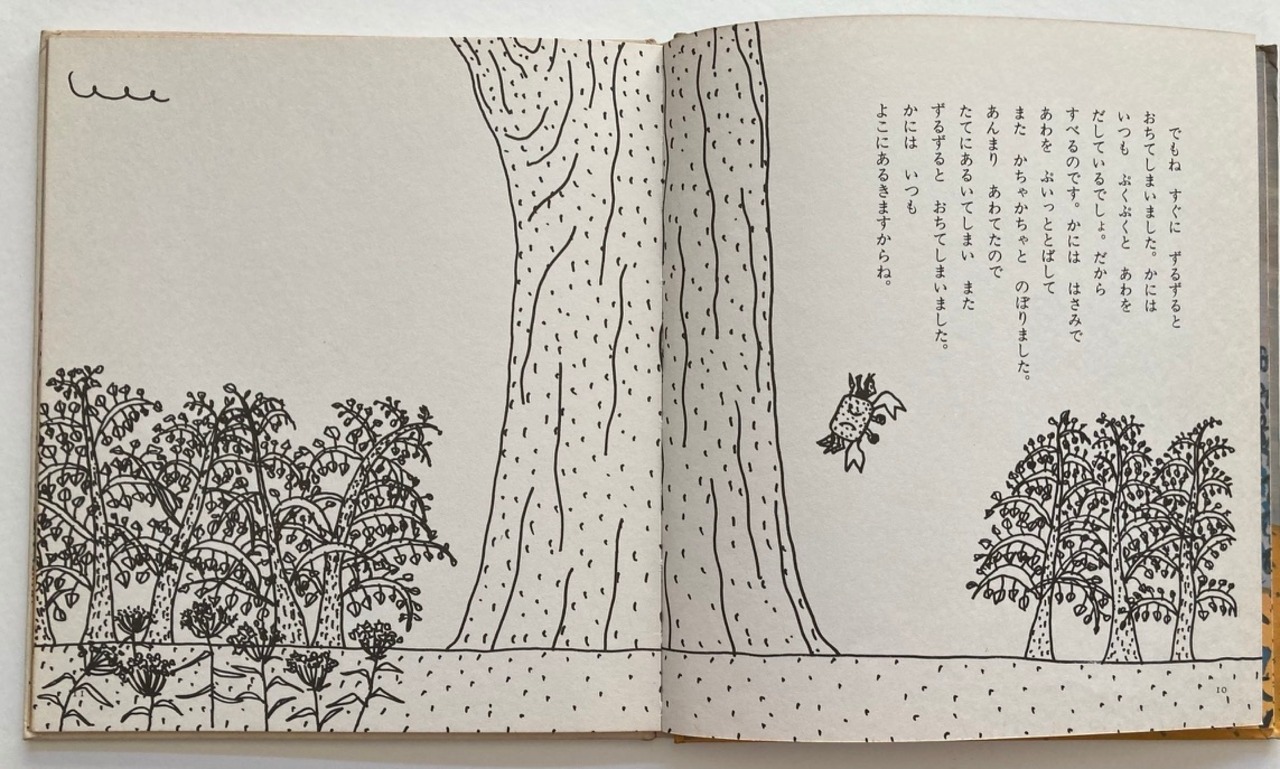 でもね　すぐに　ずるずると
おちてしまいました。かには
いつも　ぷくぷくと　あわを
だしているでしょ。だから
すべるのです。かには　はさみで
あわを　ぷいっととばして
また　かちゃかちゃと　のぼりました。
あんまり　あわてたので
たてにあるいてしまい　また
ずるずると　おちてしまいました。
かには　いつも
よこにあるきますからね。
10